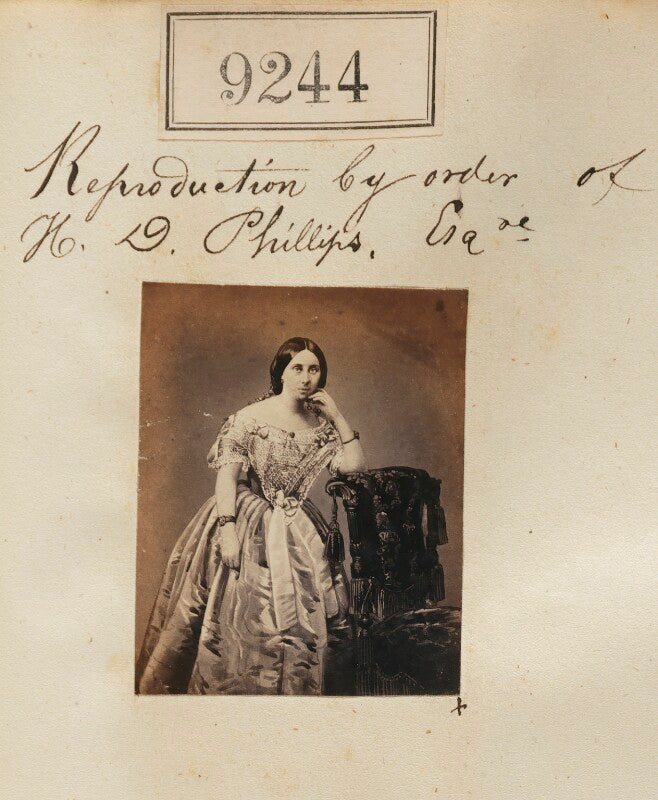 9244
Reproduction by order of
H. D. Phillips, Esqre